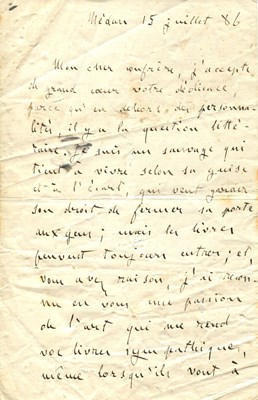 Médan 15 juillet 86
Mon cher confrère, j'accepte
de grand cœur votre dédicace,
parce qu'en dehors des personna-
lités, il y a la question litté-
raire. Je suis un sauvage qui
tient à vivre selon sa guise
et à l'écart, qui veut garder
son droit de fermer sa porte
aux gens ; mais les livres
peuvent toujours entrer ; et,
vous avez raison, j'ai recon-
nu en vous une passion
de l'art qui me rend
vos livres sympathiques,
même lorsqu'ils vont à